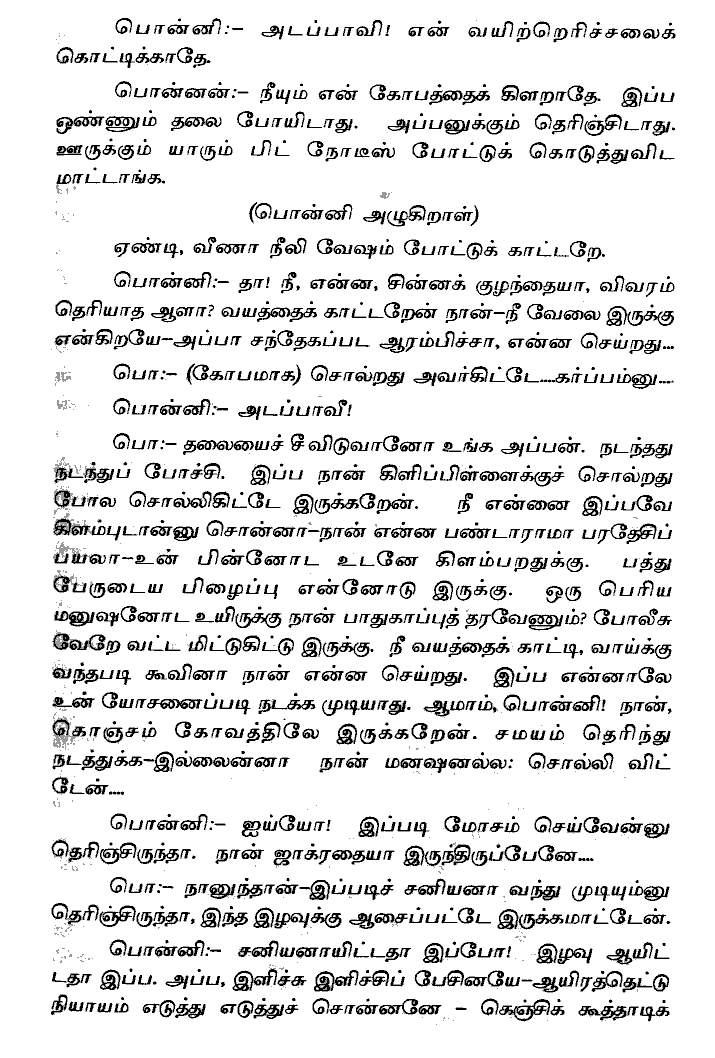 பொன்னி:– அடப்பாவி! என் வயிற்றெரிச்சலைக்
கொட்டிக்காதே.
பொன்னன்:– நீயும் என் கோபத்தைக் கிளறாதே. இப்ப
ஒண்ணும் தலை போயிடாது. அப்பனுக்கும் தெரிஞ்சிடாது.
ஊருக்கும் யாரும் பிட் நோடீஸ் போட்டுக் கொடுத்துவிட
மாட்டாங்க.
(பொன்னி அழுகிறாள்)
ஏண்டி, வீணா நீலி வேஷம் போட்டுக் காட்டறே.
பொன்னி:– தா! நீ, என்ன, சின்னக் குழந்தையா, விவரம்
தெரியாத ஆளா? வயத்தைக் காட்டறேன் நான்–நீ வேலை இருக்கு
என்கிறயே–அப்பா சந்தேகப்பட ஆரம்பிச்சா, என்ன செய்றது...
பொ:– (கோபமாக) சொல்றது அவர்கிட்டே....கர்ப்பம்னு....
பொன்னி:– அடப்பாவீ!
பொ:– தலையைச் சீவிடுவானோ உங்க அப்பன். நடந்தது
நடந்துப் போச்சி. இப்ப நான் கிளிப்பிள்ளைக்குச் சொல்றது
போல சொல்லிகிட்டே இருக்கறேன். நீ என்னை இப்பவே
கிளம்புடான்னு சொன்னா–நான் என்ன பண்டாராமா பரதேசிப்
பயலா–உன் பின்னோட உடனே கிளம்பறதுக்கு. பத்து
பேருடைய பிழைப்பு என்னோடு இருக்கு. ஒரு பெரிய
மனுஷனோட உயிருக்கு நான் பாதுகாப்புத் தரவேணும்? போலீசு
வேறே வட்ட மிட்டுகிட்டு இருக்கு. நீ வயத்தைக் காட்டி, வாய்க்கு
வந்தபடி கூவினா நான் என்ன செய்றது. இப்ப என்னாலே
உன் யோசனைப்படி நடக்க முடியாது. ஆமாம், பொன்னி! நான்,
கொஞ்சம் கோவத்திலே இருக்கறேன். சமயம் தெரிந்து
நடத்துக்க–இல்லைன்னா நான் மனஷனல்ல: சொல்லி விட்
டேன்....
பொன்னி:– ஐய்யோ! இப்படி மோசம் செய்வேன்னு
தெரிஞ்சிருந்தா. நான் ஜாக்ரதையா இருந்திருப்பேனே....
பொ:– நானுந்தான்–இப்படிச் சனியனா வந்து முடியும்னு
தெரிஞ்சிருந்தா, இந்த இழவுக்கு ஆசைப்பட்டே இருக்கமாட்டேன்.
பொன்னி:– சனியனாயிட்டதா இப்போ! இழவு ஆயிட்
டதா இப்ப. அப்ப, இளிச்சு இளிச்சிப் பேசினயே–ஆயிரத்தெட்டு
நியாயம் எடுத்து எடுத்துச் சொன்னனே – கெஞ்சிக் கூத்தாடிக்